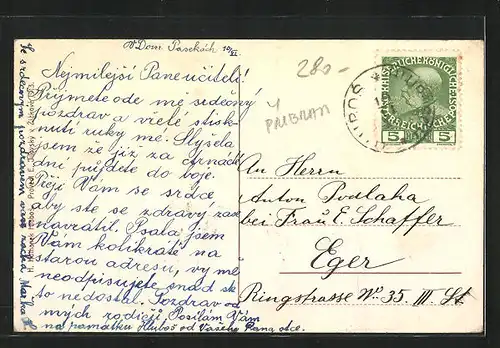 V Dom. Pasekách 10/XI.
Nejmilejší Pane učiteli!
Přijmete ode mě srdečný
pozdrav a vřele stisk-
nutí ruky mé. Slyšela
jsem že již za čtrnáct
dní půjdete do boje.
Přeji Vám ze srdce
aby ste se zdravý zase
navrátil. Psala jsem
Vám kolikráte na
starou adresu, vy mě
neodpisujete snad ste
to nedostal. Pozdrav od
mých rodičů Posílám Vám
na památku Hluboš od Vašeho Pana otce.
Se srdečným pozdravem vaše
280-
PŘIBRAM
HLUBOŠ
5 5
An Herrn
Anton Podlaha
bei Frau E. Schaffer
Eger
Ringstrasse No. 35. III. St